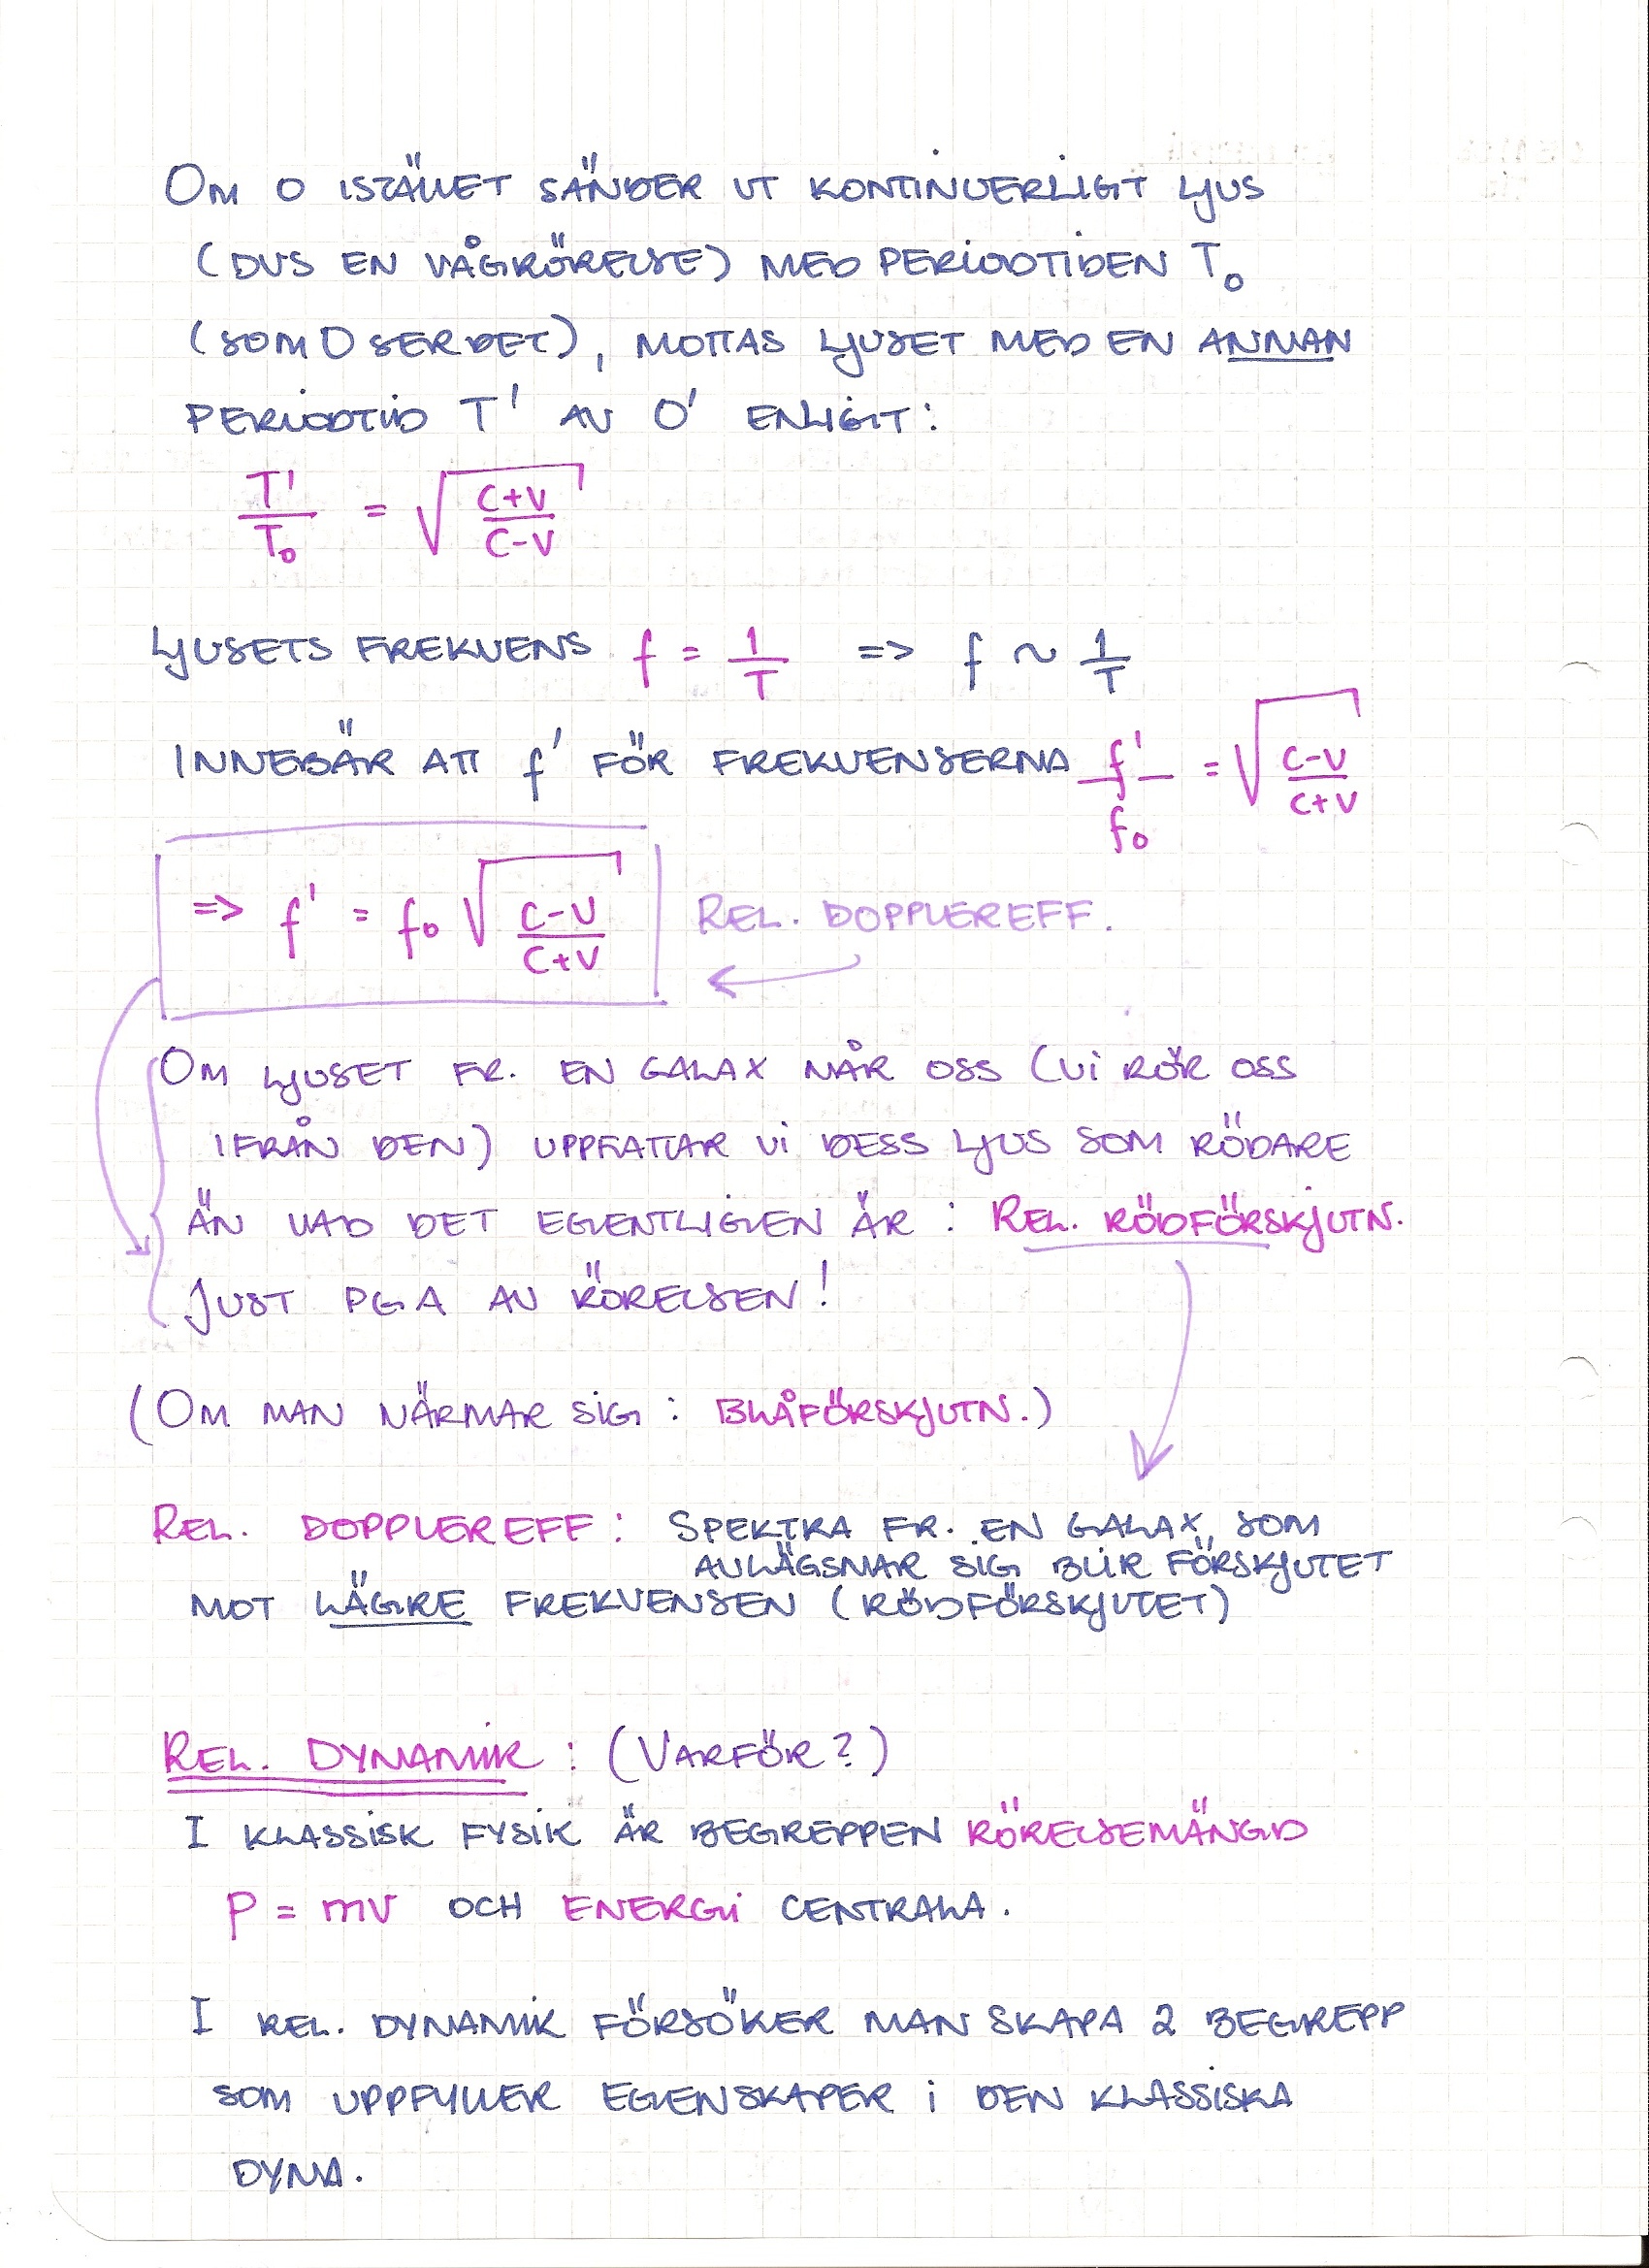 Om O istället sänder ut kontinuerligt ljus
(dvs en vågrörelse) med periodtiden T₀
(som O ser det), mottas ljuset med en annan
periodtid T' av O' enligt:
T'/T₀ = √((c+v)/(c-v))
Ljusets frekvens f = 1/T => f ~ 1/T
innebär att f' för frekvenserna f'/f₀ = √((c-v)/(c+v))
=> f' = f₀ √((c-v)/(c+v)) Rel. Dopplereff.
Om ljuset fr. en galax når oss (vi rör oss
ifrån den) uppfattar vi dess ljus som rödare
än vad det egentligen är : Rel. rödförskjutn.
Just pga av rörelsen!
(Om man närmar sig : blåförskjutn.)
Rel. Dopplereff: Spektra fr. en galax, som
avlägsnar sig blir förskjutet
mot lägre frekvensen (rödförskjutet)
Rel. Dynamik : (Varför?)
I klassisk fysik är begreppen rörelsemängd
p = mv och energi centrala.
I rel. dynamik försöker man skapa 2 begrepp
som uppfyller egenskaper i den klassiska
dyna.